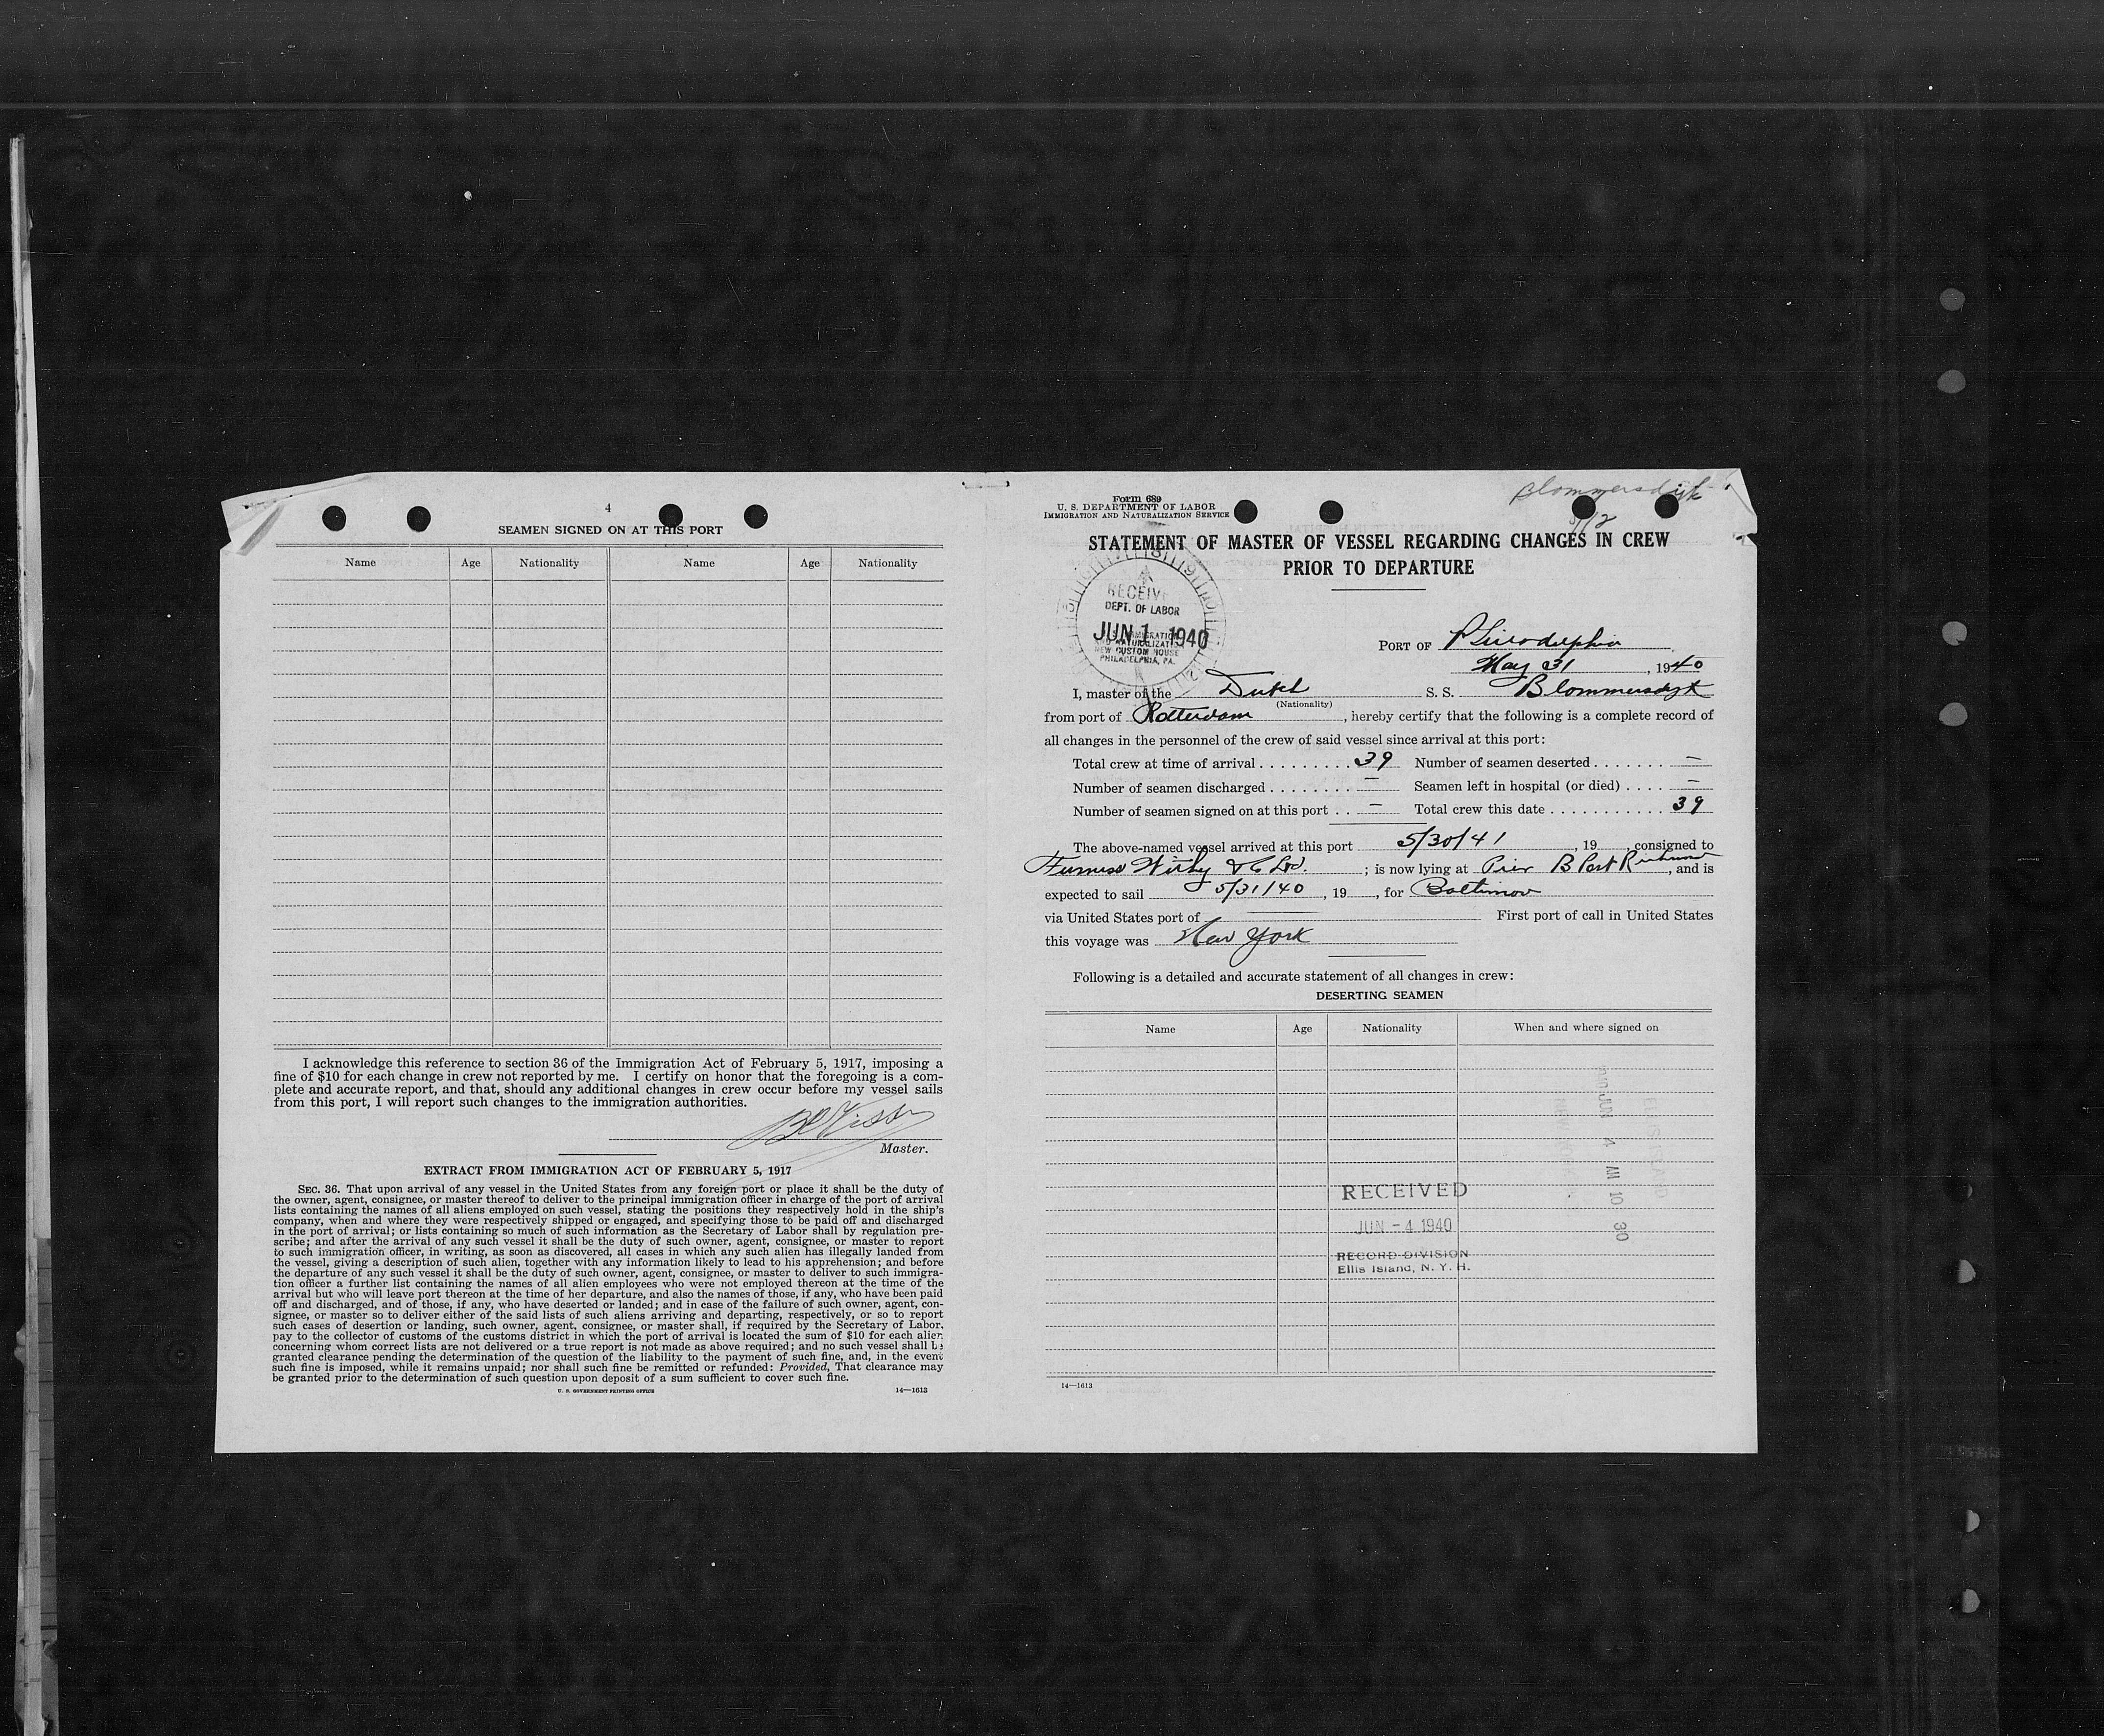 4
SEAMEN SIGNED ON AT THIS PORT
Name Age Nationality Name Age Nationality
I acknowledge this reference to section 36 of the Immigration Act of February 5, 1917, imposing a
fine of $10 for each change in crew not reported by me. I certify on honor that the foregoing is a com-
plete and accurate report, and that, should any additional changes in crew occur before my vessel sails
from this port, I will report such changes to the immigration authorities.
Master.
EXTRACT FROM IMMIGRATION ACT OF FEBRUARY 5, 1917
SEC. 36. That upon arrival of any vessel in the United States from any foreign port or place it shall be the duty of
the owner, agent, consignee, or master thereof to deliver to the principal immigration officer in charge of the port of arrival
lists containing the names of all aliens employed on such vessel, stating the positions they respectively hold in the ship's
company, when and where they were respectively shipped or engaged, and specifying those to be paid off and discharged
in the port of arrival; or lists containing so much of such information as the Secretary of Labor shall by regulation pre-
scribe; and after the arrival of any such vessel it shall be the duty of such owner, agent, consignee, or master to report
to such immigration officer, in writing, as soon as discovered, all cases in which any such alien has illegally landed from
the vessel, giving a description of such alien, together with any information likely to lead to his apprehension; and before
the departure of any such vessel it shall be the duty of such owner, agent, consignee, or master to deliver to such immigra-
tion officer a further list containing the names of all alien employees who were not employed thereon at the time of the
arrival but who will leave port thereon at the time of her departure, and also the names of those, if any, who have been paid
off and discharged, and of those, if any, who have deserted or landed; and in case of the failure of such owner, agent, con-
signee, or master so to deliver either of the said lists of such aliens arriving and departing, respectively, or so to report
such cases of desertion or landing, such owner, agent, consignee, or master shall, if required by the Secretary of Labor,
pay to the collector of customs of the customs district in which the port of arrival is located the sum of $10 for each alien
concerning whom correct lists are not delivered or a true report is not made as above required; and no such vessel shall be
granted clearance pending the determination of the question of the liability to the payment of such fine, and, in the event
such fine is imposed, while it remains unpaid; nor shall such fine be remitted or refunded: Provided, That clearance may
be granted prior to the determination of such question upon deposit of a sum sufficient to cover such fine.
U. S. GOVERNMENT PRINTING OFFICE 14—1613
Blommersdijk
Form 689
U. S. DEPARTMENT OF LABOR
IMMIGRATION AND NATURALIZATION SERVICE
STATEMENT OF MASTER OF VESSEL REGARDING CHANGES IN CREW
PRIOR TO DEPARTURE
DEPT. OF LABOR
JUN 1 1940
NEW CUSTOM HOUSE
PHILADELPHIA, PA.
PORT OF Philadelphia
May 31, 1940
I, master of the Dutch S. S. Blommersdyk
(Nationality)
from port of Rotterdam, hereby certify that the following is a complete record of
all changes in the personnel of the crew of said vessel since arrival at this port:
Total crew at time of arrival . . . . . . . . . 39 Number of seamen deserted . . . . . . . —
Number of seamen discharged . . . . . . . . — Seamen left in hospital (or died) . . . . —
Number of seamen signed on at this port . . — Total crew this date . . . . . . . . . . . 39
The above-named vessel arrived at this port 5/30/41, 19 , consigned to
Furness Withy & C Ltd. ; is now lying at Pier B Port Richmond, and is
expected to sail 5/31/40, 19 , for Baltimore
via United States port of — First port of call in United States
this voyage was New York
Following is a detailed and accurate statement of all changes in crew:
DESERTING SEAMEN
Name Age Nationality When and where signed on
RECEIVED
JUN - 4 1940
RECORD DIVISION
Ellis Island, N. Y. H.
JUN 4 AM 10 30
14—1613